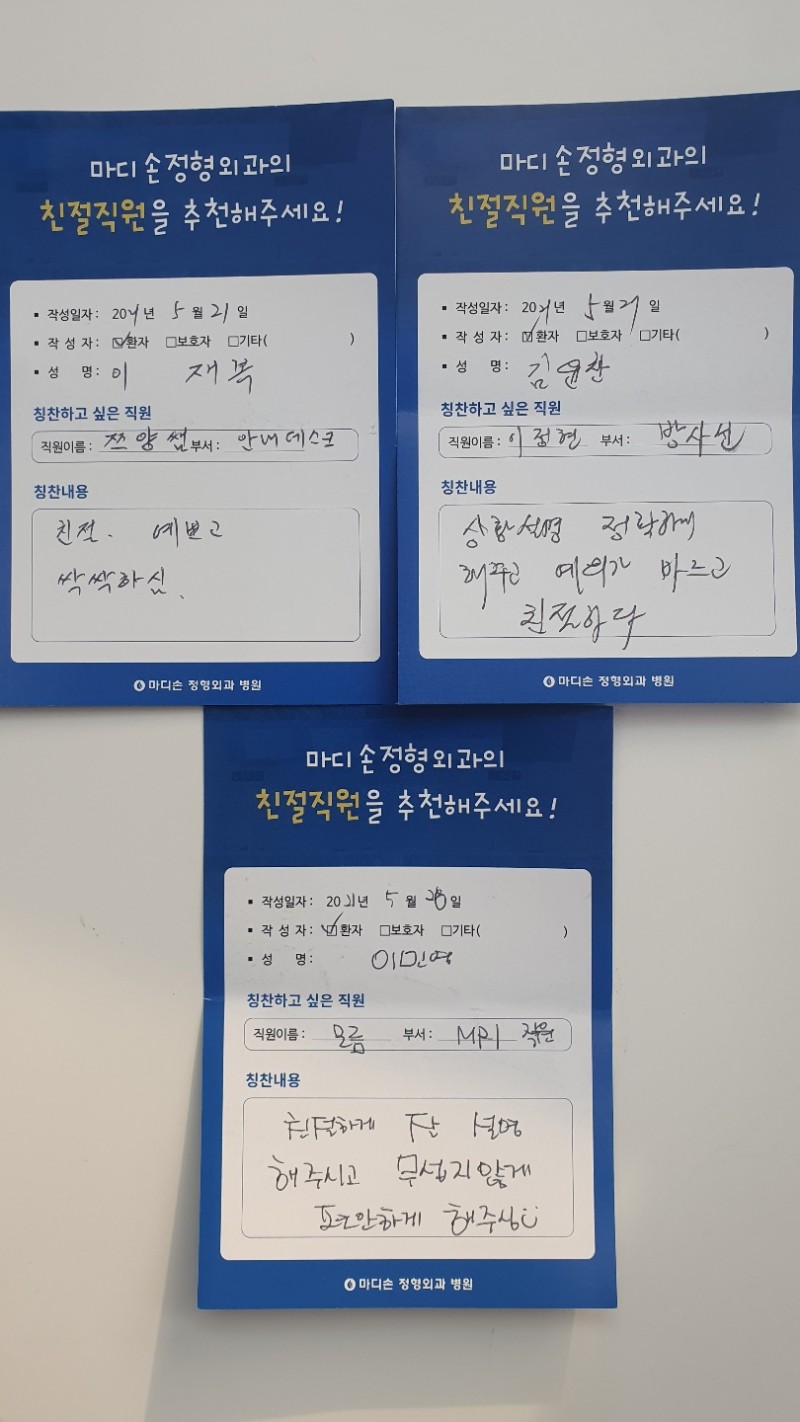 마디 손정형외과의
친절직원을 추천해주세요!
작성일자: 2021년 5월 21일
작 성 자: ☑환자 □보호자 □기타( )
성 명: 이 재복
칭찬하고 싶은 직원
직원이름: 쯔양쌤 부서: 안내데스크
칭찬내용
친절. 예쁘고
싹싹하심.
마디손 정형외과 병원
마디 손정형외과의
친절직원을 추천해주세요!
작성일자: 2021년 5월 21일
작 성 자: ☑환자 □보호자 □기타( )
성 명: 김윤찬
칭찬하고 싶은 직원
직원이름: 이정현 부서: 방사선
칭찬내용
상황설명 정확하게
해주고 예의가 바르고
친절하다
마디손 정형외과 병원
마디 손정형외과의
친절직원을 추천해주세요!
작성일자: 2021년 5월 일
작 성 자: ☑환자 □보호자 □기타( )
성 명: 이민영
칭찬하고 싶은 직원
직원이름: 모름 부서: MRI 직원
칭찬내용
친절하게 잘 설명
해주시고 무섭지않게
편안하게 해주심
마디손 정형외과 병원